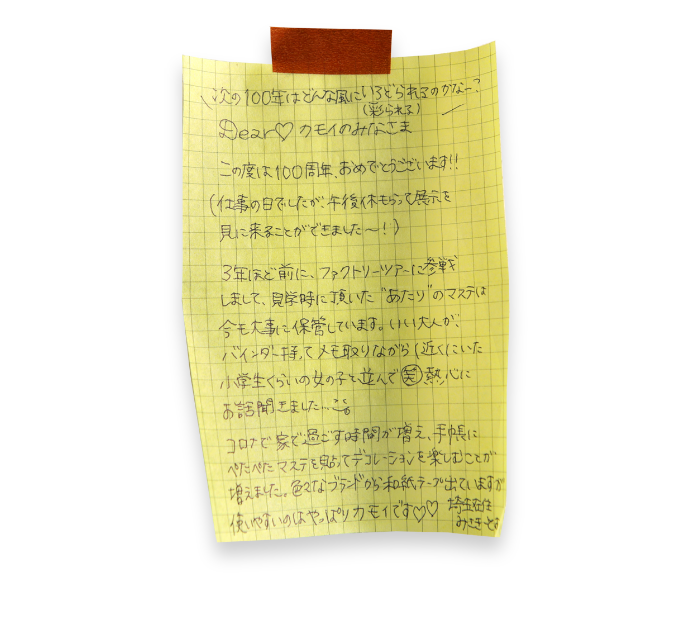 次の100年はどんな風にいろどられるのかなー?
(彩られる)
Dear♡ カモイのみなさま
この度は100周年、おめでとうございます!!
(仕事の日でしたが、午後休もらって展示を
見に来ることができました〜!)
3年ほど前に、ファクトリーツアーに参戦
しまして、見学時に頂いた"あたり"のマステは
今も大事に保管しています。いい大人が、
バインダー持ってメモ取りながら(近くにいた
小学生くらいの女の子と並んで㊗笑 熱心に
お話聞きました…
コロナで家で過ごす時間が増え、手帳に
ぺたぺたマステを貼ってデコレーションを楽しむことが
増えました。色々なブランドから和紙テープ出ていますが
使いやすいのはやっぱりカモイです♡♡
埼玉在住
みさきっ